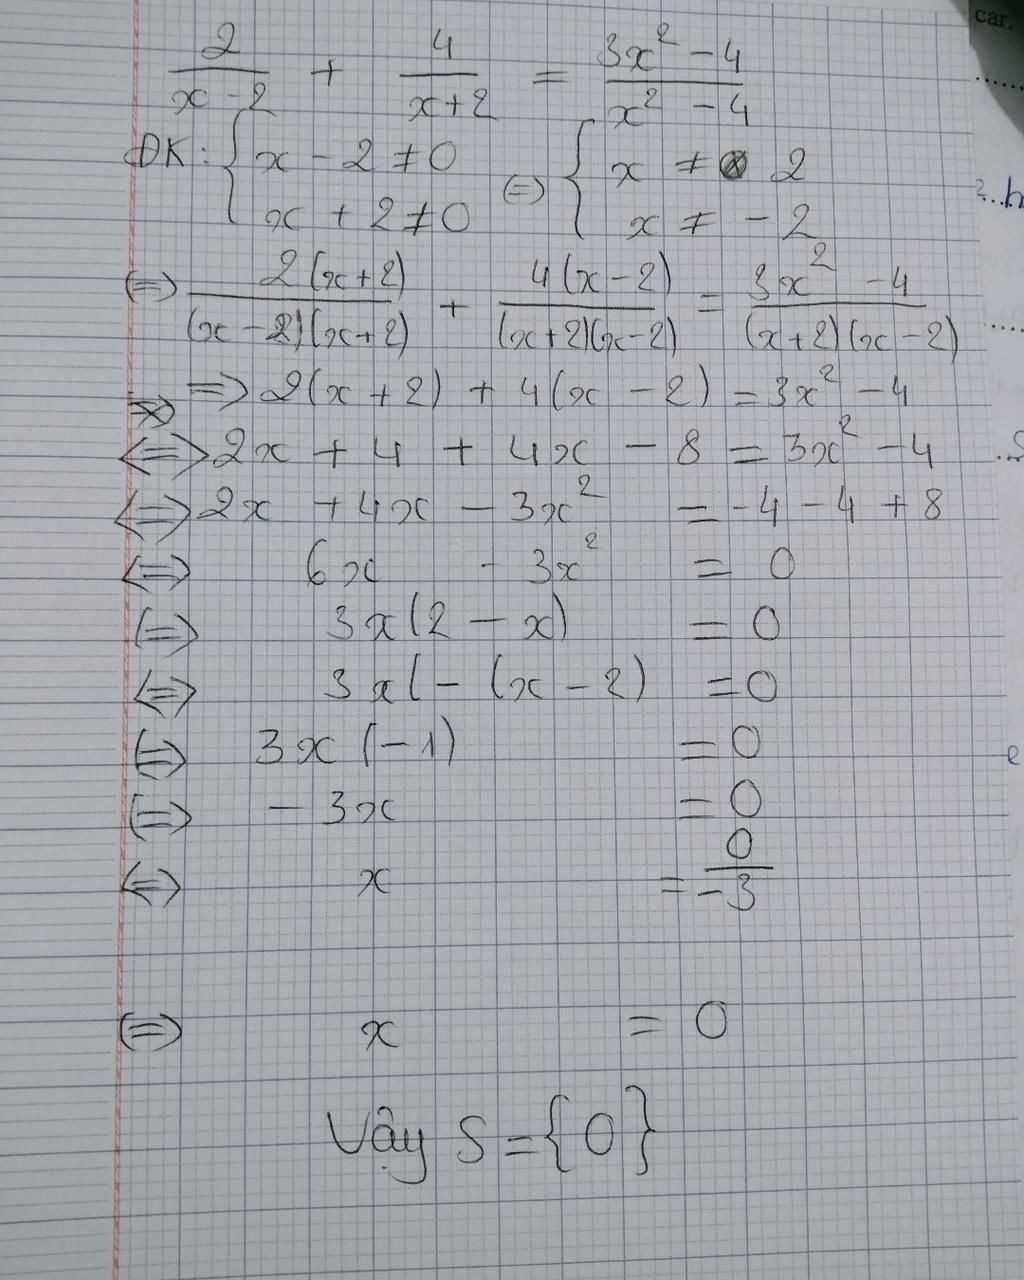 car.
2/(x - 2) + 4/(x + 2) = (3x² - 4)/(x² - 4)
ĐK: { x - 2 ≠ 0 (=) { x ≠ 2
x + 2 ≠ 0 x ≠ - 2
(=) 2(x + 2)/((x - 2)(x + 2)) + 4(x - 2)/((x + 2)(x - 2)) = (3x² - 4)/((x + 2)(x - 2))
=> 2(x + 2) + 4(x - 2) = 3x² - 4
<=> 2x + 4 + 4x - 8 = 3x² - 4
<=> 2x + 4x - 3x² = - 4 - 4 + 8
<=> 6x - 3x² = 0
(=> 3x(2 - x) = 0
<=> 3x(- (x - 2) = 0
(=> 3x(-1) = 0
(=> - 3x = 0
<=> x = 0/-3
(=> x = 0
Vậy S = {0}